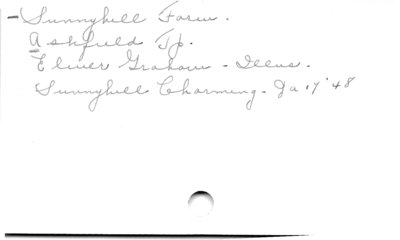 - Sunnyhill Farm.
Ashfield Tp.
Elmer Graham - Illus.
Sunnyhill Charming - Ja 17 '48